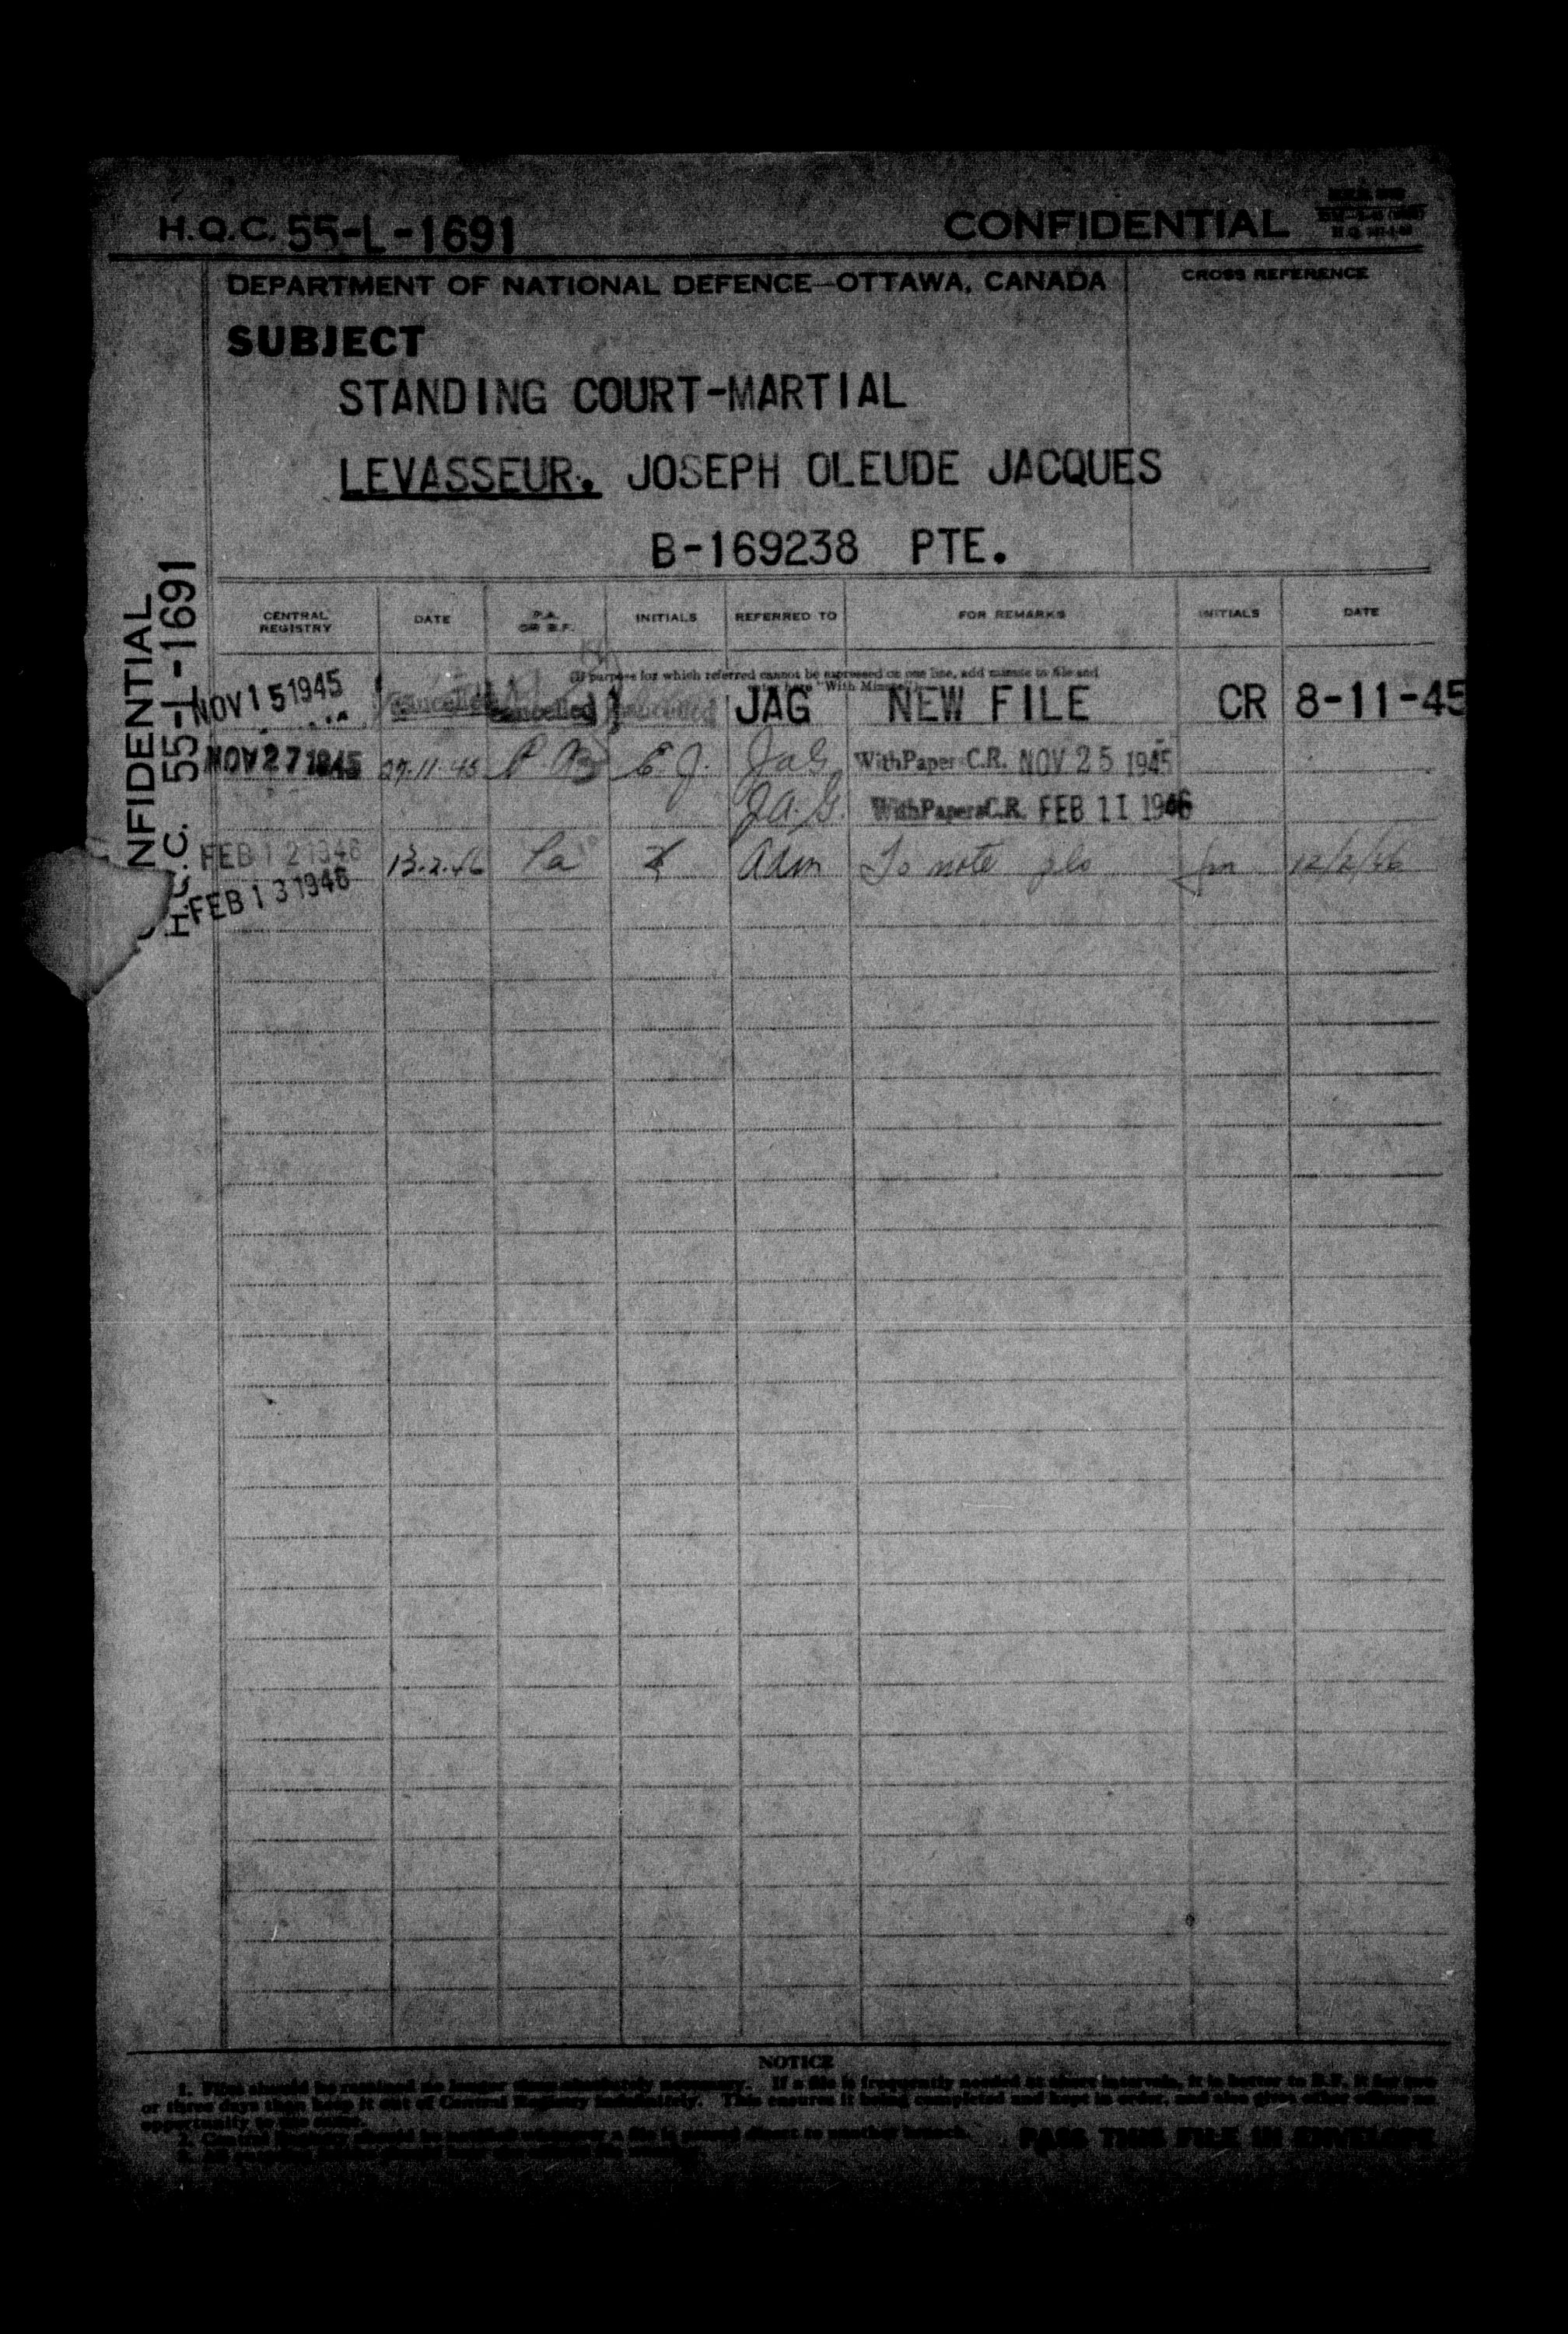 H.Q.C. 55-L-1691
CONFIDENTIAL
DEPARTMENT OF NATIONAL DEFENCE—OTTAWA, CANADA
CROSS REFERENCE
SUBJECT
STANDING COURT-MARTIAL
LEVASSEUR, JOSEPH OLEUDE JACQUES
B-169238 PTE.
NFIDENTIAL
55-L-1691
CENTRAL REGISTRY DATE P.A. OR B.F. INITIALS REFERRED TO FOR REMARKS INITIALS DATE
(If purpose for which referred cannot be expressed on one line, add minute to file and
"With
NOV 15 1945 Cancelled Cancelled Cancelled JAG NEW FILE CR 8-11-45
NOV 27 1945 27.11.45 P.A. E.J. JaG With Paper C.R. NOV 25 1945
J.A.G. With Papers C.R. FEB 11 1946
FEB 12 1946 13.2.46 Pa Adm To note pls 12/2/46
FEB 13 1946
NOTICE
1. Files should be retained no longer than absolutely necessary. If a file is frequently needed at short intervals, it is better to B.F. it for two
or three days than keep it out of Central Registry indefinitely. This ensures it being completed and kept in order, and also gives other offices an
opportunity
2. Central Registry should be notified whenever a file is passed direct to another branch.
PASS THIS FILE IN ENVELOPE